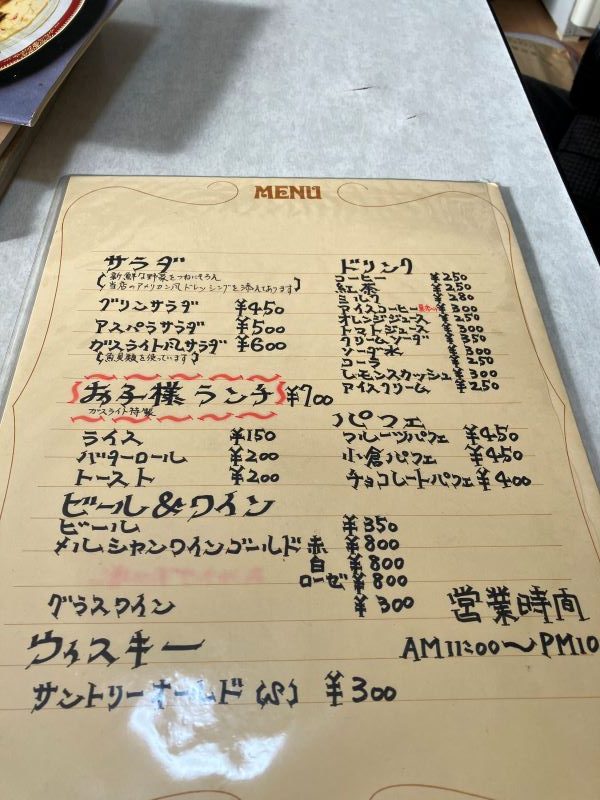 MENU
サラダ
新鮮な野菜をつねにそろえ
当店のアメリカン風ドレッシングを添えてあります
グリンサラダ ¥450
アスパラサラダ ¥500
ガスライト風サラダ ¥600
魚貝類を使っています
お子様ランチ ¥700
ガスライト特製
ライス ¥150
バターロール ¥200
トースト ¥200
ビール&ワイン
ビール ¥350
メルシャンワインゴールド 赤 ¥800
白 ¥800
ローゼ ¥800
グラスワイン ¥300
ウィスキー
サントリーオールド (S) ¥300
ドリンク
コーヒー ¥250
紅茶 ¥250
ミルク ¥280
アイスコーヒー ¥300
オレンジジュース ¥250
トマトジュース ¥300
クリームソーダ ¥350
ソーダ水 ¥300
コーラ ¥250
レモンスカッシュ ¥300
アイスクリーム ¥250
パフェ
フルーツパフェ ¥450
小倉パフェ ¥450
チョコレートパフェ ¥400
営業時間
AM11:00〜PM10